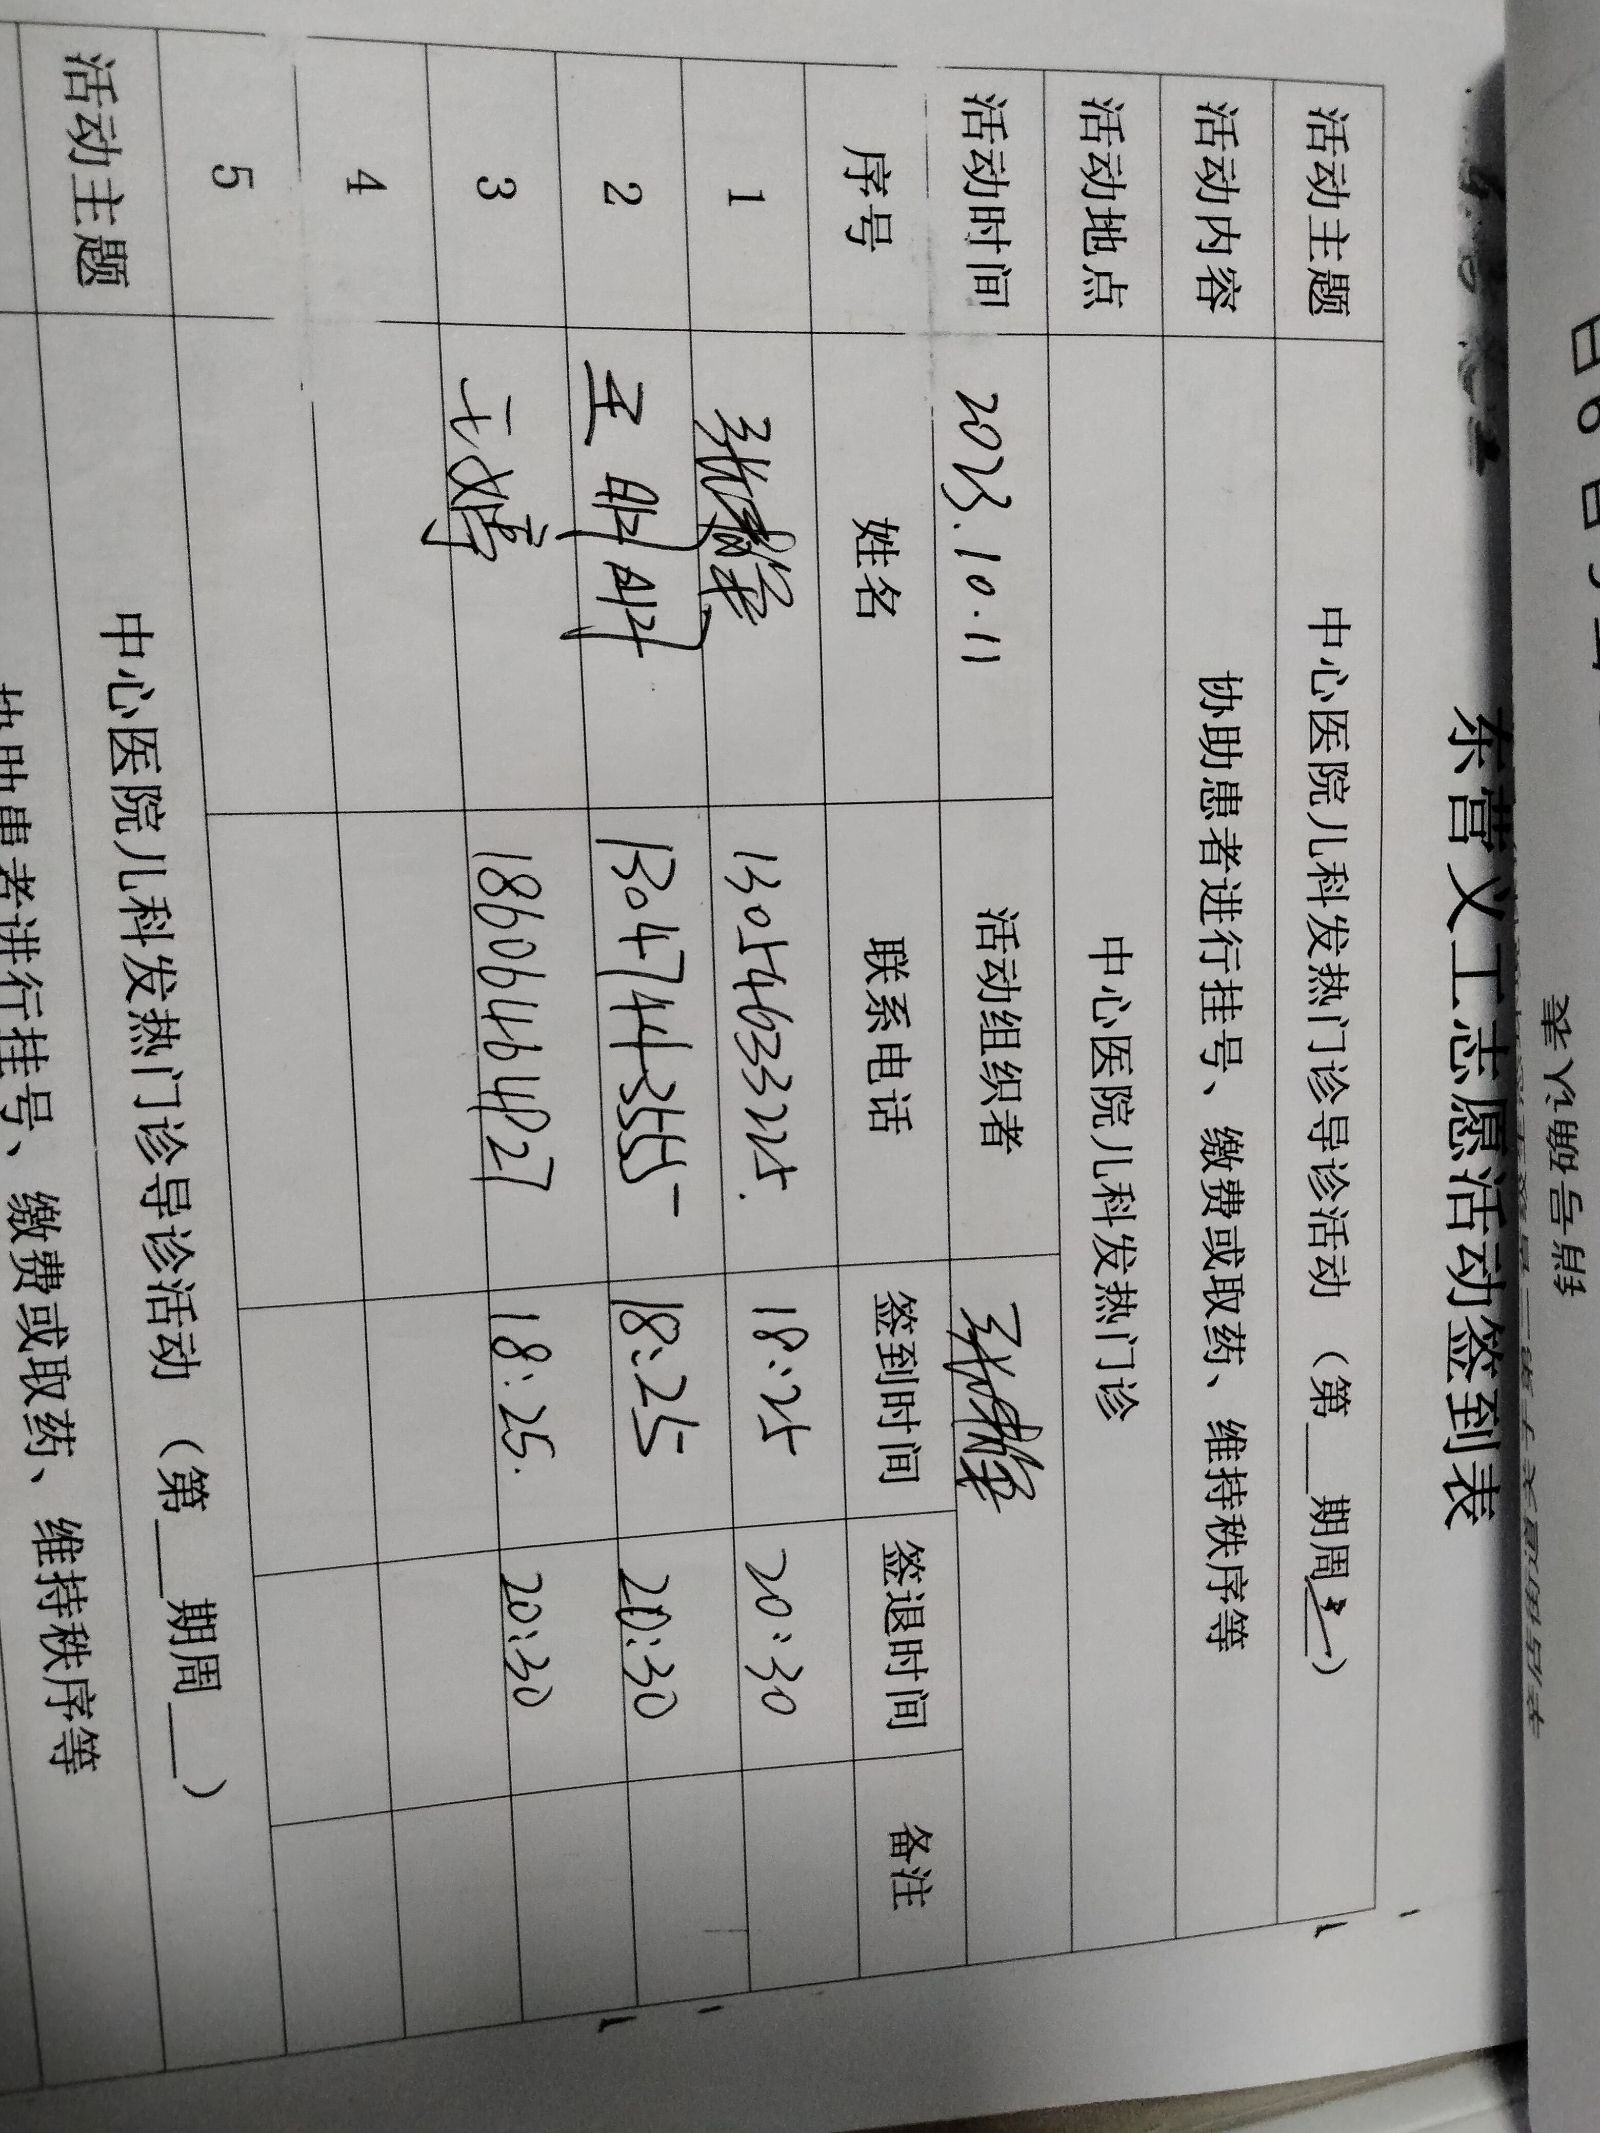 东营义工志愿活动签到表
活动主题 中心医院儿科发热门诊导诊活动 （第__期周三）
活动内容 协助患者进行挂号、缴费或取药、维持秩序等
活动地点 中心医院儿科发热门诊
活动时间 2023.10.11 活动组织者
序号 姓名 联系电话 签到时间 签退时间 备注
1 13054633225 18:25 20:30
2 王明明 13047441355 18:25 20:30
3 18606464827 18:25 20:30
4
5
活动主题 中心医院儿科发热门诊导诊活动 （第__期周__）
协助患者进行挂号、缴费或取药、维持秩序等